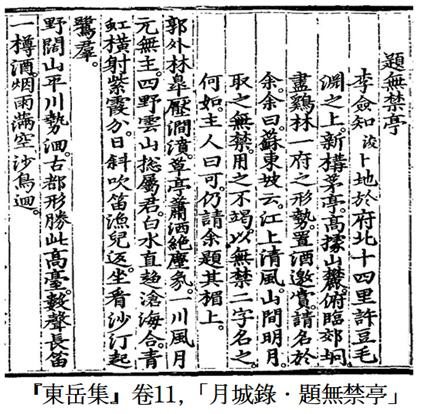 題無禁亭
李僉知浚卜地於府北十四里許豆毛
淵之上。新構茅亭。高據山麓。俯臨郊坰。
盡鷄林一府之形勢。置酒邀賞。請名於
余。余曰。蘇東坡云。江上清風。山間明月。
取之無禁。用之不竭。以無禁二字名之
何如。主人曰可。仍請余題其楣上。
郭外林皐壓澗濆。草亭蕭洒絶塵氛。一川風月
元無主。四野雲山摠屬君。白水直趍滄海合。青
虹橫射紫霞分。日斜吹笛漁兒返。坐看沙汀起
鷺羣。
野闊山平川勢洄。古都形勝此高臺。數聲長笛
一樽酒。烟雨滿空沙鳥迴。
『東岳集』卷11,「月城錄·題無禁亭」